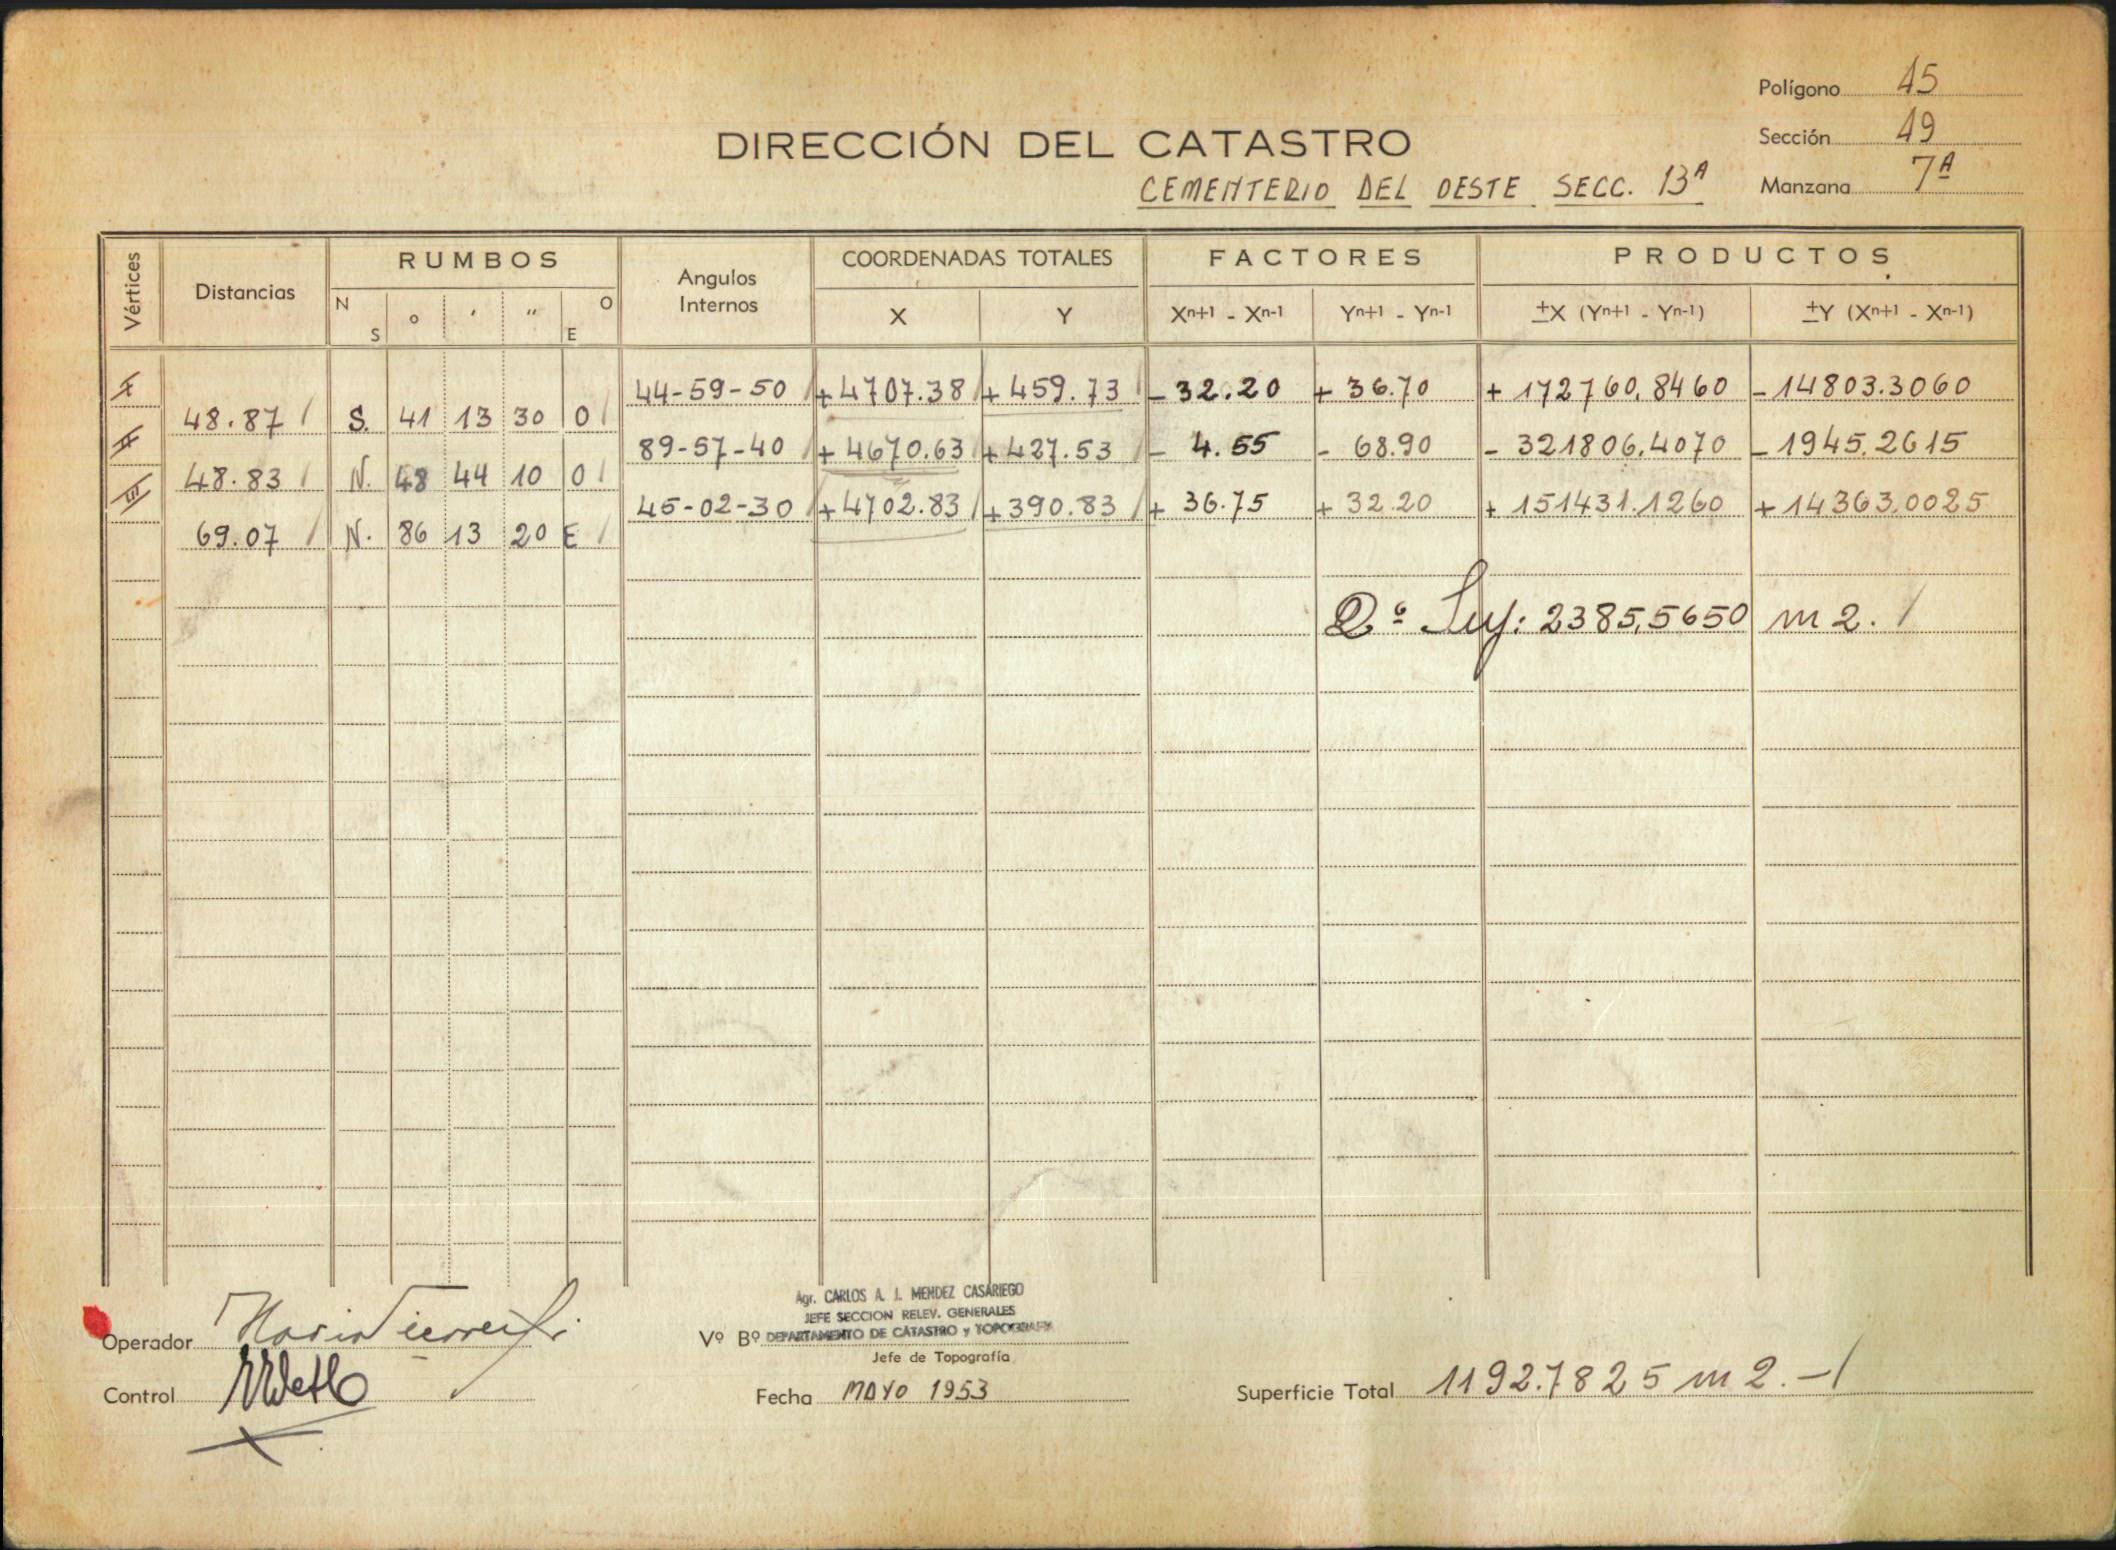 Polígono 45
DIRECCIÓN DEL CATASTRO
Sección 49
CEMENTERIO DEL OESTE SECC. 13ᴬ
Manzana 7ᴬ
Vértices Distancias RUMBOS Angulos Internos COORDENADAS TOTALES FACTORES PRODUCTOS
N S ° ' " O E X Y Xⁿ⁺¹ - Xⁿ⁻¹ Yⁿ⁺¹ - Yⁿ⁻¹ ±X (Yⁿ⁺¹ - Yⁿ⁻¹) ±Y (Xⁿ⁺¹ - Xⁿ⁻¹)
I 44-59-50 +4707.38 +459.73 -32.20 +36.70 +172760,8460 -14803.3060
48.87 S. 41 13 30 O
II 89-57-40 +4670.63 +427.53 -4.55 -68.90 -321806,4070 -1945.2615
48.83 N. 48 44 10 O
III 45-02-30 +4702.83 +390.83 +36.75 +32.20 +151431.1260 +14363,0025
69.07 N. 86 13 20 E
Sup: 2385,5650 m2.
Agr. CARLOS A. J. MENDEZ CASARIEGO
JEFE SECCION RELEV. GENERALES
Operador Vº Bº DEPARTAMENTO DE CATASTRO y TOPOGRAFIA
Jefe de Topografía
Control Fecha MAYO 1953 Superficie Total 1192.7825 m2.-